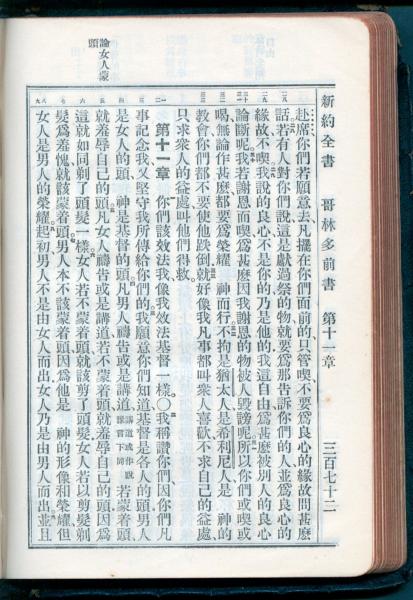 新約全書 哥林多前書 第十一章 三百七十二
赴席你們若願意去凡擺在你們面前的只管喫不要爲良心的緣故問甚麽
話若有人對你們說這是獻過祭的物就要爲那告訴你們的人並爲良心的
緣故不喫我說的良心不是你的乃是他的我這自由爲甚麽被別人的良心
論斷呢我若謝恩而喫爲甚麽因我謝恩的物被人毀謗呢所以你們或喫或
喝無論作甚麽都要爲榮耀 神而行不拘是猶太人是希利尼人是 神的
教會你們都不要使他跌倒就好像我凡事都叫衆人喜歡不求自己的益處
只求衆人的益處叫他們得救
第十一章 你們該效法我像我效法基督一樣〇我稱讚你們因你們凡
事記念我又堅守我所傳給你們的我願意你們知道基督是各人的頭男人
是女人的頭 神是基督的頭凡男人禱告或是講道講道或作說豫言下同若蒙着頭
就羞辱自己的頭凡女人禱告或是講道若不蒙着頭就羞辱自己的頭因爲
這就如同剃了頭髮一樣女人若不蒙着頭就該剪了頭髮女人若以剪髮剃
髮爲羞愧就該蒙着頭男人本不該蒙着頭因爲他是 神的形像和榮耀但
女人是男人的榮耀起初男人不是由女人而出女人乃是由男人而出並且
論女人蒙頭